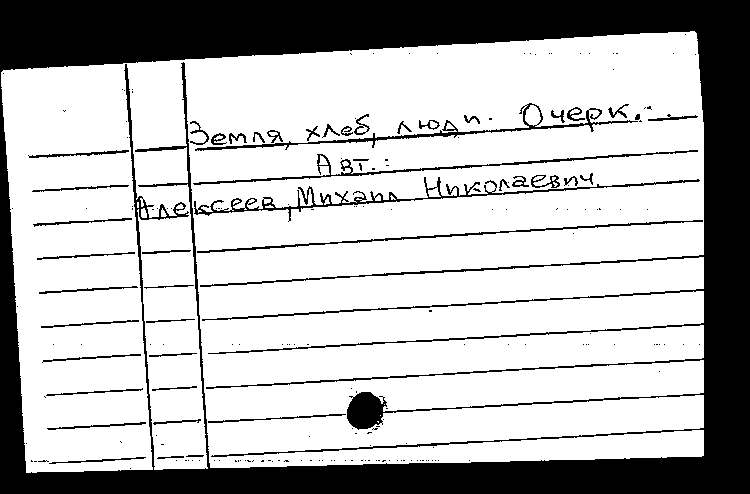 Земля, хлеб, люди. Очерк.-.
Авт.:
Алексеев, Михаил Николаевич.